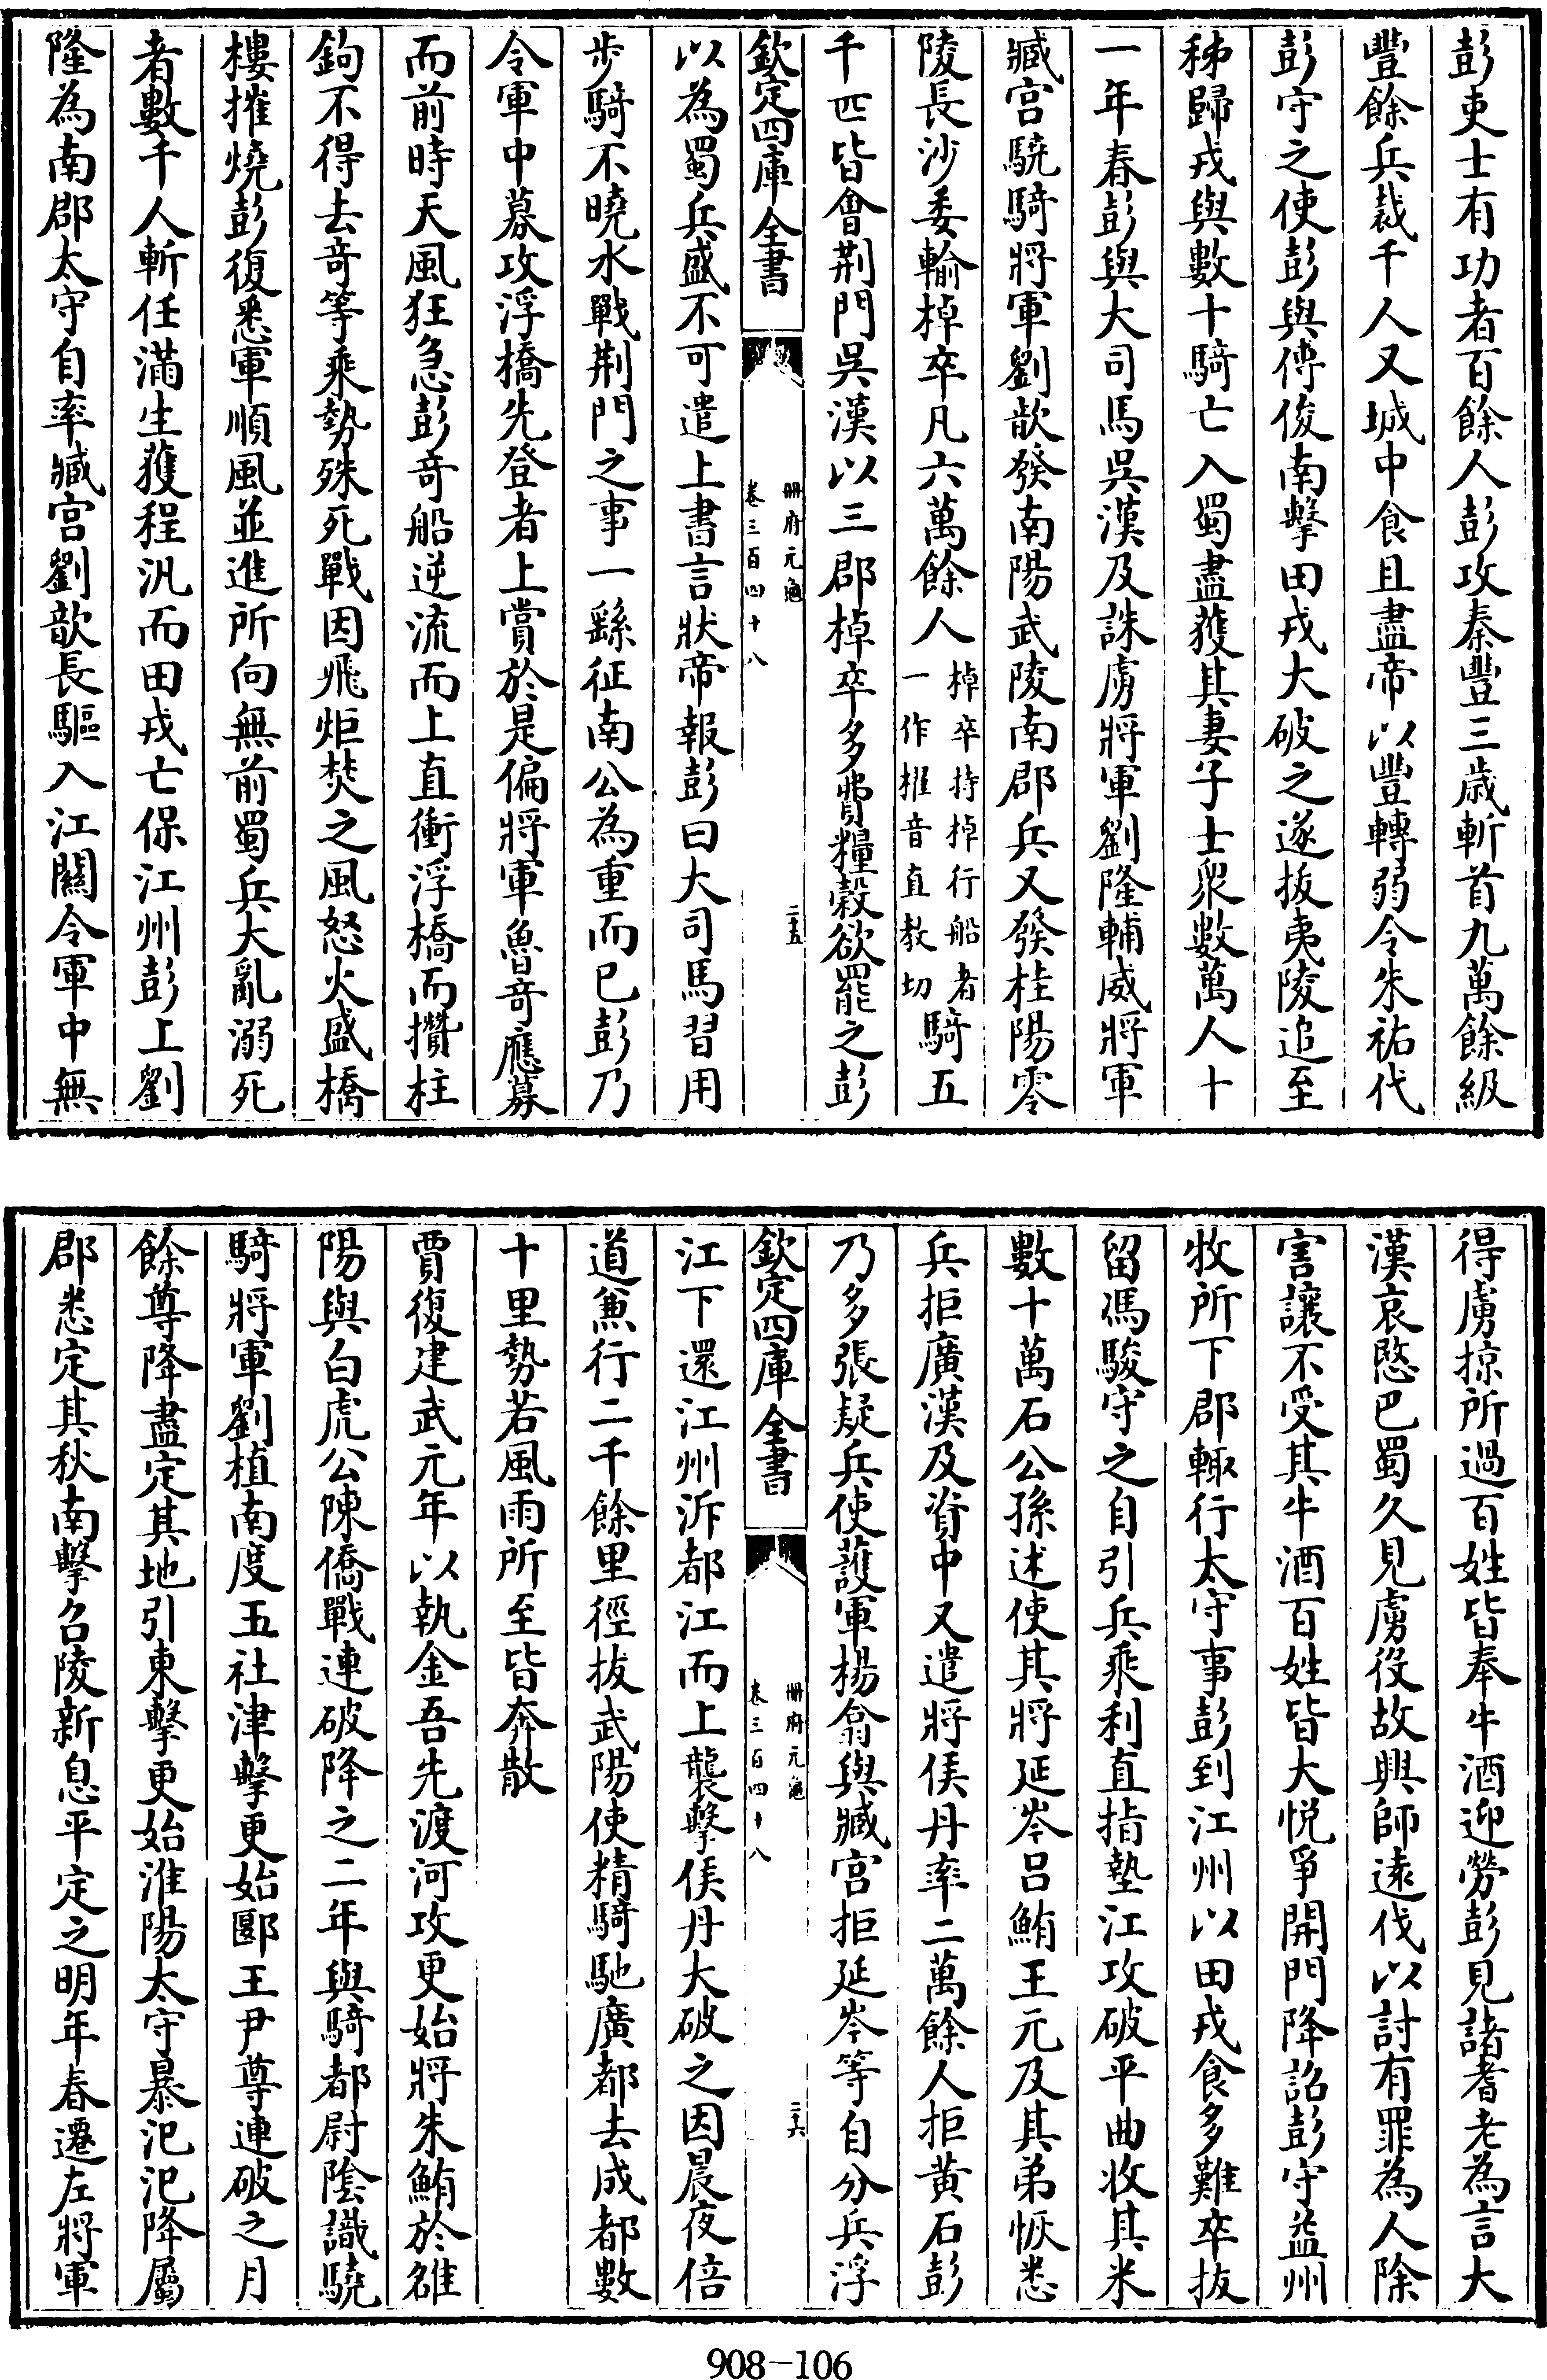 彭吏士有功者百餘人彭攻秦豐三歲斬首九萬餘級
豐餘兵裁千人又城中食且盡帝以豐轉弱令朱祐代
彭守之使彭與傅俊南擊田戎大破之遂拔夷陵追至
秭歸戎與數十騎亡入蜀盡獲其妻子士衆數萬人十
一年春彭與大司馬吳漢及誅虜將軍劉隆輔威將軍
臧宮驍騎將軍劉歆發南陽武陵南郡兵又發桂陽零
陵長沙委輸棹卒凡六萬餘人棹卒持掉行船者一作櫂音直教切騎五
千匹皆會荆門吳漢以三郡棹卒多費糧穀欲罷之彭
欽定四庫全書
冊府元龜
卷三百四十八
二十五
以為蜀兵盛不可遣上書言狀帝報彭曰大司馬習用
步騎不曉水戰荆門之事一繇征南公為重而已彭乃
令軍中募攻浮橋先登者上賞於是偏將軍魯奇應募
而前時天風狂急彭奇船逆流而上直衝浮橋而攢柱
鉤不得去奇等乘勢殊死戰因飛炬焚之風怒火盛橋
樓摧燒彭復悉軍順風並進所向無前蜀兵大亂溺死
者數千人斬任滿生獲程汎而田戎亡保江州彭上劉
隆為南郡太守自率臧宮劉歆長驅入江關令軍中無
得虜掠所過百姓皆奉牛酒迎勞彭見諸耆老為言大
漢哀愍巴蜀久見虜役故興師遠伐以討有罪為人除
害讓不受其牛酒百姓皆大悅爭開門降詔彭守益州
牧所下郡輒行太守事彭到江州以田戎食多難卒拔
留馮駿守之自引兵乘利直指墊江攻破平曲收其米
數十萬石公孫述使其將延岑呂鮪王元及其弟恢悉
兵拒廣漢及資中又遣將侯丹率二萬餘人拒黃石彭
乃多張疑兵使護軍楊翕與臧宮拒延岑等自分兵浮
欽定四庫全書
冊府元龜
卷三百四十八
二十六
江下還江州泝都江而上襲擊侯丹大破之因晨夜倍
道兼行二千餘里徑拔武陽使精騎馳廣都去成都數
十里勢若風雨所至皆奔散
賈復建武元年以執金吾先渡河攻更始將朱鮪於雒
陽與白虎公陳僑戰連破降之二年與騎都尉陰識驍
騎將軍劉植南度五社津擊更始郾王尹尊連破之月
餘尊降盡定其地引東擊更始淮陽太守暴汜汜降屬
郡悉定其秋南擊召陵新息平定之明年春遷左將軍
908-106